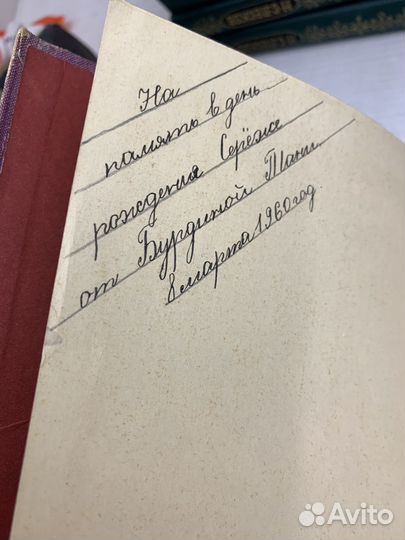 На
память в день
рождения Серёже
от Бурдиной Тани
8 марта 1960 год.
Avito